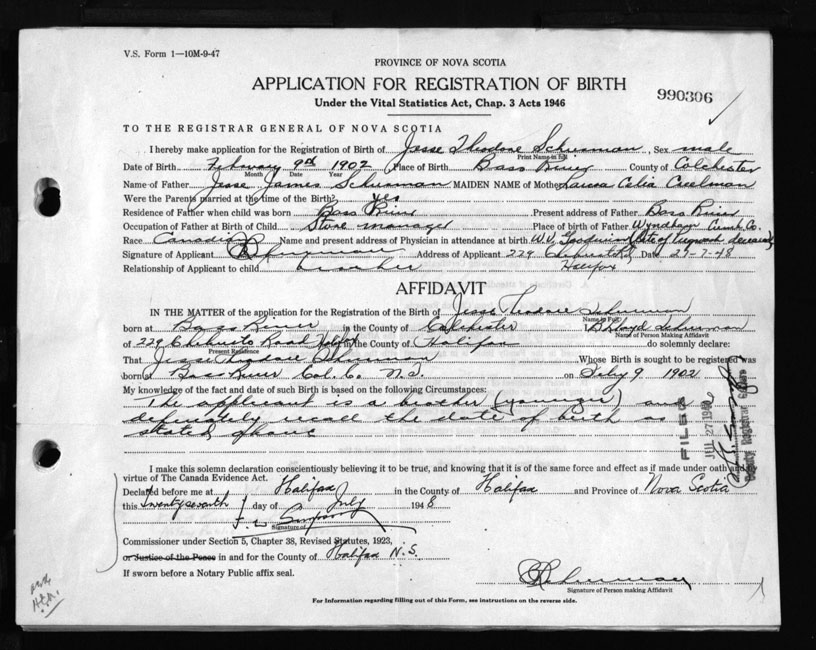 V.S. Form 1—10M-9-47
PROVINCE OF NOVA SCOTIA
APPLICATION FOR REGISTRATION OF BIRTH
Under the Vital Statistics Act, Chap. 3 Acts 1946
990306
TO THE REGISTRAR GENERAL OF NOVA SCOTIA
I hereby make application for the Registration of Birth of Jesse Theodore Schurman, Sex male
Print Name in full
Date of Birth February 9th 1902 Place of Birth Bass River County of Colchester
Month Date Year
Name of Father Jesse James Schurman MAIDEN NAME of Mother Laura Celia Creelman
Were the Parents married at the time of the Birth? yes
Residence of Father when child was born Bass River Present address of Father Bass River
Occupation of Father at Birth of Child Store manager Place of birth of Father Wyndham Cumb. Co.
Race Canadian Name and present address of Physician in attendance at birth W.V. Goodwin (late of Pugwash deceased)
Signature of Applicant Schurman Address of Applicant 229 Chebucto Rd Date 27-7-48
Relationship of Applicant to child brother Halifax
AFFIDAVIT
IN THE MATTER of the application of the Registration of the Birth of Jesse Theodore Schurman
Name in Full
born at Bass River in the County of Colchester I, B Lloyd Schurman
Name of Person making Affidavit
of 229 Chebucto Road Halifax in the County of Halifax do solemnly declare:
Present Residence
That Jesse Theodore Schurman Whose Birth is sought to be registered was
born at Bass River Col. Co. N.S. on July 9 1902
My knowledge of the fact and date of such Birth is based on the following Circumstances:
The applicant is a brother (younger) and
definitely recall the date of birth as
stated above
FILED
JUL 27 1948
Deputy Registrar General
I make this solemn declaration conscientiously believing it to be true, and knowing that it is of the same force and effect as if made under oath and by
virtue of The Canada Evidence Act.
Declared before me at Halifax in the County of Halifax and Province of Nova Scotia
this twenty seventh day of July 1948
F. W. Simpson
Signature of
Commissioner under Section 5, Chapter 38, Revised Statutes, 1923,
or Justice of the Peace in and for the County of Halifax N.S.
If sworn before a Notary Public affix seal.
Schurman
Signature of Person making Affidavit
For Information regarding filling out of this Form, see instructions on the reverse side.